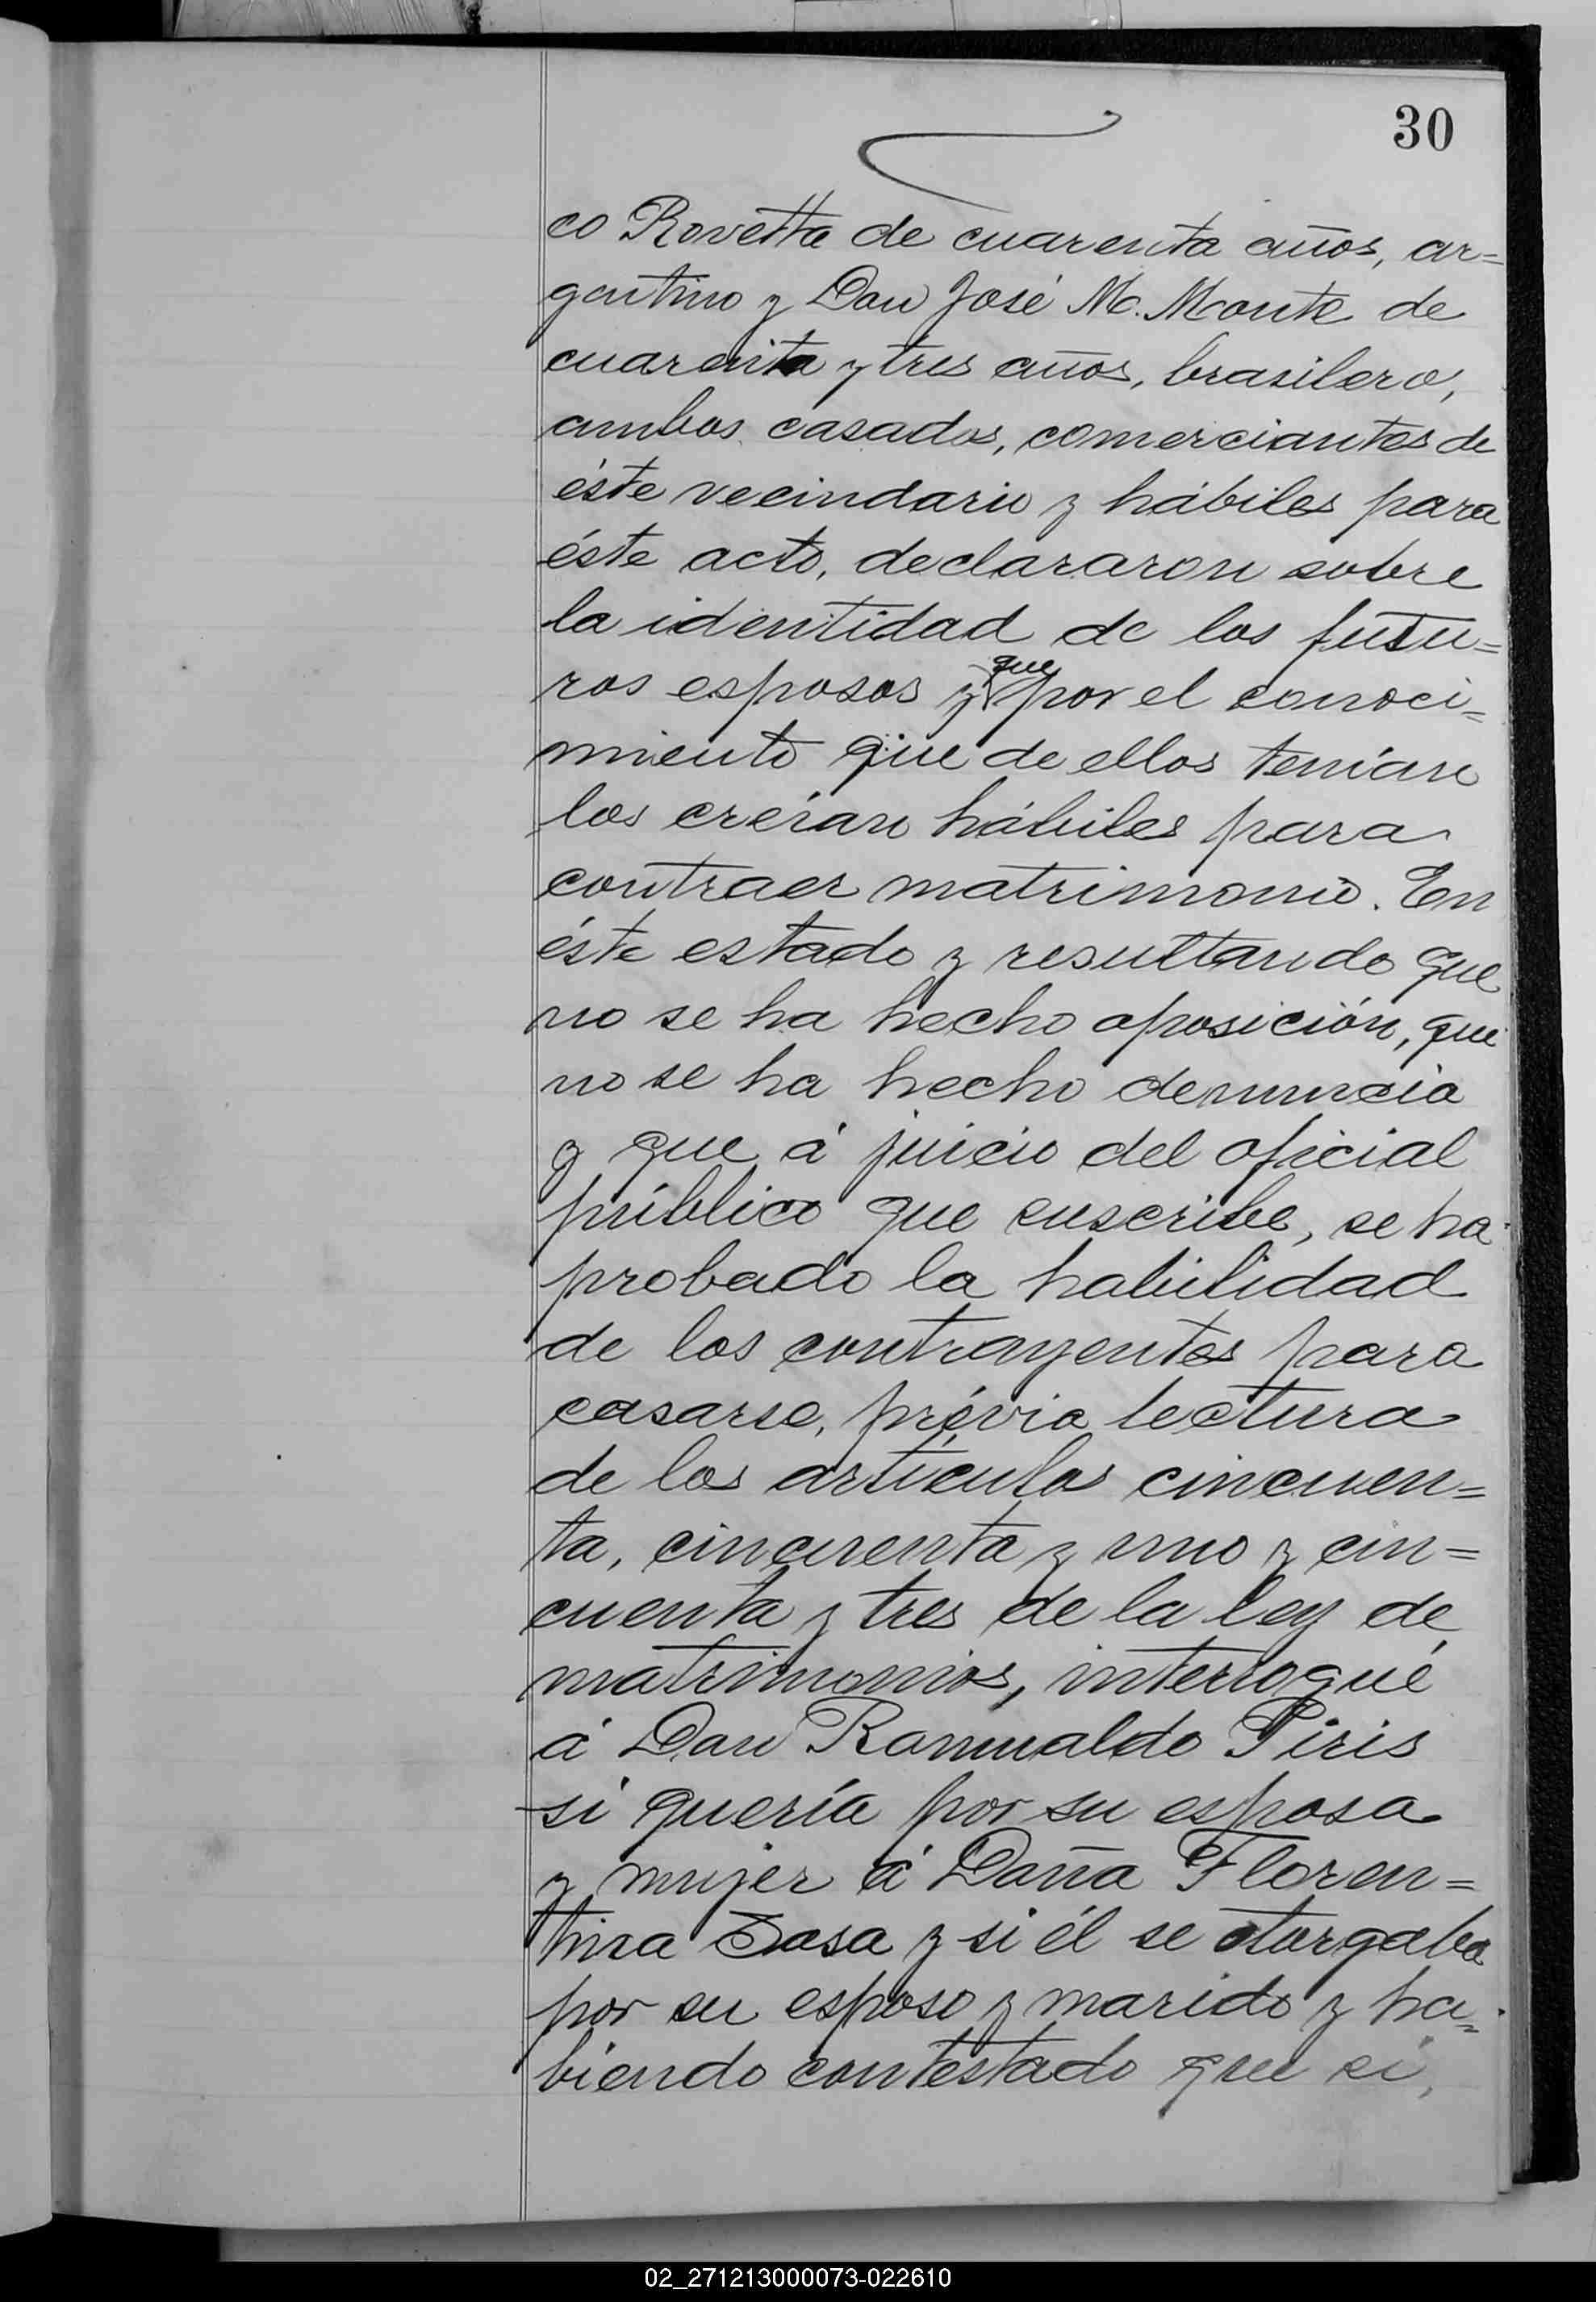 30
co Rovetta de cuarenta años, ar=
gentino y Don José M. Monte de
cuarenta y tres años, brasilero,
ambos casados, comerciantes de
éste vecindario y hábiles para
éste acto, declararon sobre
la identidad de los futu=
ros esposos y que por el conoci=
miento que de ellos tenían
los creían hábiles para
contraer matrimonio. En
éste estado y resultando que
no se ha hecho oposición, que
no se ha hecho denuncia
y que á juicio del oficial
público que suscribe, se ha
probado la habilidad
de los contrayentes para
casarse, prévia lectura
de los artículos cincuen=
ta, cincuenta y uno y cin=
cuenta y tres de la ley de
matrimonios, interrogué
á Don Romualdo Piris
si quería por su esposa
y mujer á Doña Floren=
tina Sosa y si él se otorgaba
por su esposo y marido y ha=
biendo contestado que si,
02_271213000073-022610